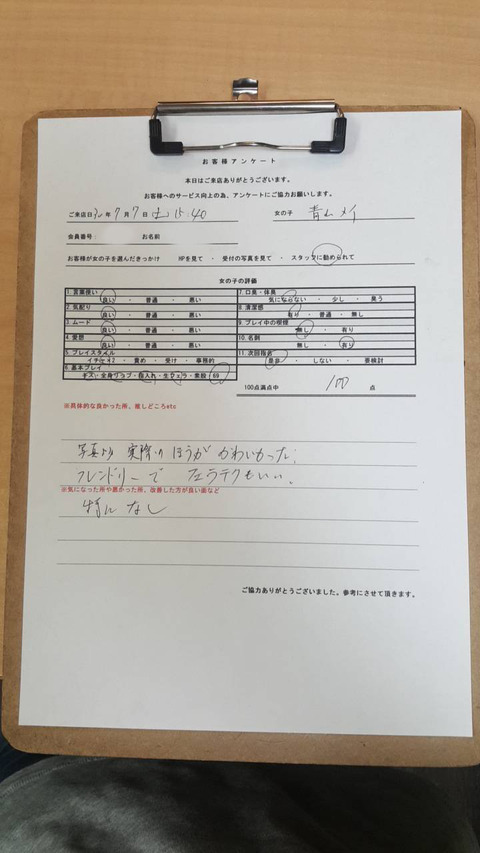 お客様アンケート
本日はご来店ありがとうございます。
お客様へのサービス向上の為、アンケートにご協力お願いします。
ご来店日 30年 7月 7日 土 15:40 女の子 青山 メイ
会員番号: お名前
お客様が女の子を選んだきっかけ HPを見て ・ 受付の写真を見て ・ スタッフに勧められて
女の子の評価
1.言葉使い 良い ・ 普通 ・ 悪い 7.口臭・体臭 気にならない ・ 少し ・ 臭う
2.気配り 良い ・ 普通 ・ 悪い 8.清潔感 有り ・ 普通 ・ 無し
3.ムード 良い ・ 普通 ・ 悪い 9.プレイ中の喫煙 無し ・ 有り
4.愛想 良い ・ 普通 ・ 悪い 10.名刺 無し ・ 有り
5.プレイスタイル イチャイチャ ・ 責め ・ 受け ・ 事務的 11.次回指名 是非 ・ しない ・ 要検討
6.基本プレイ キス・全身リップ・指入れ・生フェラ・素股・69
100点満点中 100 点
※具体的な良かった所、推しどころetc
写真より 実際のほうが かわいかった!
フレンドリーで フェラテクもいい。
※気になった所や悪かった所、改善した方が良い面など
特に なし
ご協力ありがとうございました。参考にさせて頂きます。